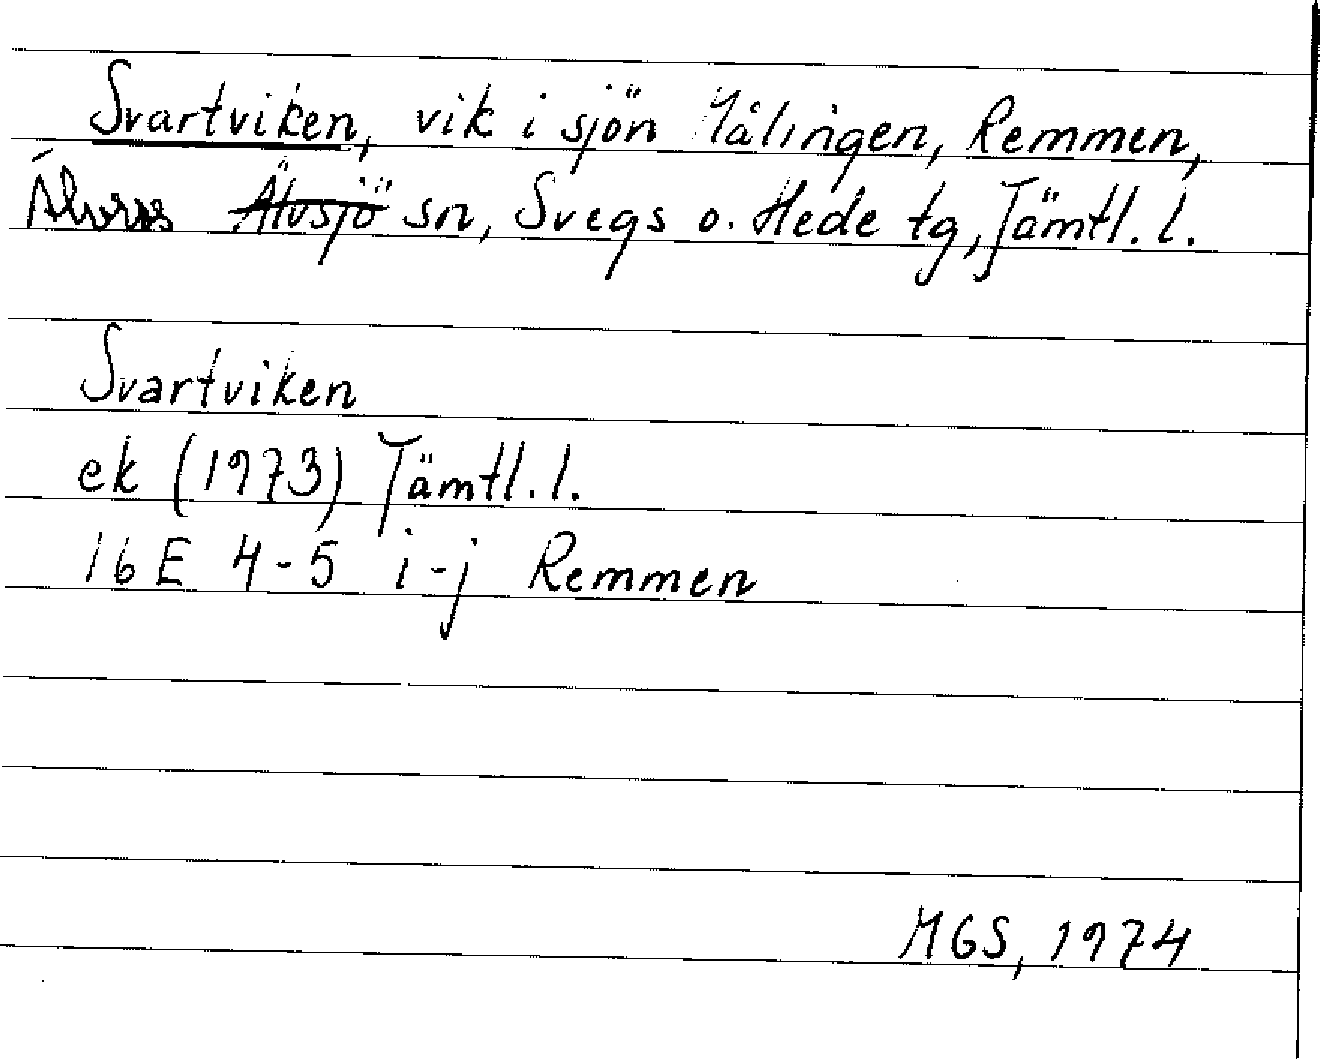 Svartviken, vik i sjön Målingen, Remmen,
Älvros Älvsjö sn, Svegs o. Hede tg, Jämtl. l.
Svartviken
ek (1973) Jämtl. l.
16E 4-5 i-j Remmen
MGS, 1974